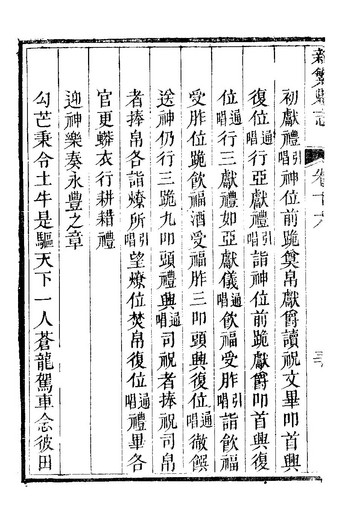 新繁縣志 卷十六 三
初獻禮引唱神位前跪奠帛獻爵讀祝文畢叩首興
復位通唱行亞獻禮引唱詣神位前跪獻爵叩首興復
位通唱行三獻禮如亞獻儀通唱飲福受胙引唱詣飲福
受胙位跪飲福酒受福胙三叩頭興復位通唱徹饌
送神仍行三跪九叩頭禮興通唱司祝者捧祝司帛
者捧帛各詣燎所引唱望燎位焚帛復位通唱禮畢各
官更蟒衣行耕耤禮
迎神樂奏永豐之章
勾芒秉令土牛是驅天下一人蒼龍駕車念彼田